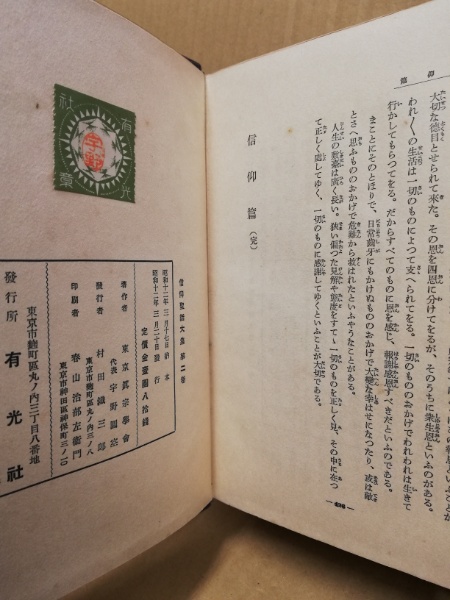 仰篇
大切な徳目とせられて来た。その恩を四恩に分けてをるが、そのうちに衆生恩といふのがある。
われ〱の生活は一切のものによつて支へられてをる。一切のもののおかげでわれわれは生きて
行かしてもらつてをる。だからすべてのものに恩を感じ、報謝感恩すべきだといふのである。
まことにそのとほりで、日常歯牙にもかけぬもののおかげで大変な幸はせになつたり、或は敵
とさへ思ふもののおかげで危難から救はれたといふやうなことがある。
人生の教養は広く長い。狭い偏つた見解や態度をすて、一切のものを正しく見、その中に在つ
て正しく処してゆく、一切のものに感謝してゆくといふことが大切である。
信仰篇 (完)
有光社
章
昭和十二年三月十七日 印刷
昭和十二年三月二十日 発行
定價金壹圓八拾錢
著作者 東京眞宗學會
代表 宇野圓空
發行者 村田鐵三郎
東京市麹町區丸ノ内三ノ八
印刷者 春山治部左衞門
東京市神田區神保町三ノ二〇
東京市麹町區丸ノ内三丁目八番地
發行所 有光社